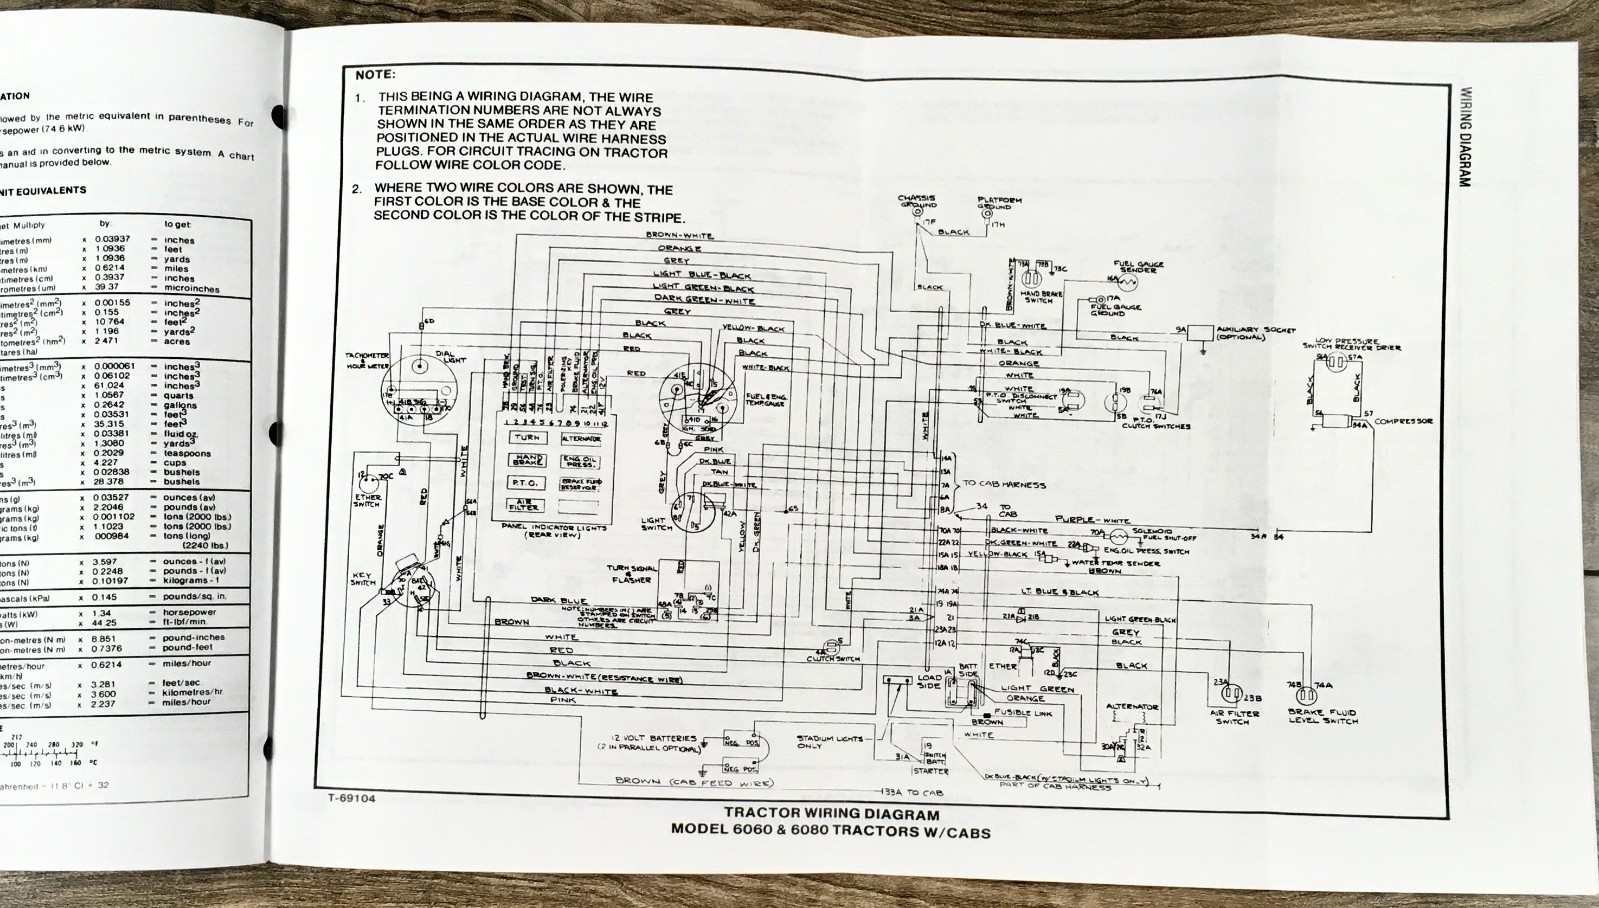 ATION
lowed by the metric equivalent in parentheses. For
rsepower (74 6 kW)
s an aid in converting to the metric system. A chart
manual is provided below.
NIT EQUIVALENTS
et Multiply by to get:
imetres (mm) x 0.03937 = inches
tres (m) x 1.0936 = feet
res (m) x 1.0936 = yards
metres (km) x 0.6214 = miles
timetres (cm) x 0.3937 = inches
rometres (um) x 39.37 = microinches
metres² (mm²) x 0.00155 = inches²
timetres² (cm²) x 0.155 = inches²
res² (m²) x 10.764 = feet²
res² (m²) x 1 196 = yards²
tometres² (hm²) x 2.471 = acres
tares (ha)
imetres³ (mm³) x 0.000061 = inches³
timetres³ (cm³) x 0.06102 = inches³
x 61.024 = inches³
s x 1.0567 = quarts
s x 0.2642 = gallons
s x 0.03531 = feet³
res³ (m³) x 35.315 = feet³
res³ (cm³) x 0.03381 = fluid oz.
res³ (m³) x 1.3080 = yards³
litres (ml) x 0.2029 = teaspoons
x 4.227 = cups
s x 0.02838 = bushels
res³ (m³) x 28.378 = bushels
ns (g) x 0 03527 = ounces (av)
grams (kg) x 2.2046 = pounds (av)
rams (kg) x 0 001102 = tons (2000 lbs.)
ic tons (t) x 1.1023 = tons (2000 lbs.)
grams (kg) x 000984 = tons (long)
(2240 lbs.)
tons (N) x 3.597 = ounces - f (av)
tons (N) x 0.2248 = pounds - f (av)
tons (N) x 0.10197 = kilograms - f
ascals (kPa) x 0.145 = pounds/sq. in.
watts (kW) x 1.34 = horsepower
s (W) x 44.25 = ft-lbf/min.
on-metres (N m) x 8.851 = pound-inches
on-metres (N m) x 0.7376 = pound-feet
etres/hour x 0.6214 = miles/hour
km/h)
es/sec (m/s) x 3.281 = feet/sec.
es/sec. (m/s) x 3 600 = kilometres/hr.
es/sec (m/s) x 2.237 = miles/hour
212
200 240 280 320 °F
100 120 140 160 °C
ahrenheit - (1.8° C) + 32
WIRING DIAGRAM
NOTE:
1. THIS BEING A WIRING DIAGRAM, THE WIRE
TERMINATION NUMBERS ARE NOT ALWAYS
SHOWN IN THE SAME ORDER AS THEY ARE
POSITIONED IN THE ACTUAL WIRE HARNESS
PLUGS. FOR CIRCUIT TRACING ON TRACTOR
FOLLOW WIRE COLOR CODE.
2. WHERE TWO WIRE COLORS ARE SHOWN, THE
FIRST COLOR IS THE BASE COLOR & THE
SECOND COLOR IS THE COLOR OF THE STRIPE.
CHASSIS
GROUND
17F
PLATFORM
GROUND
17H
BLACK
BROWN-WHITE
ORANGE
GREY
LIGHT BLUE-BLACK
LIGHT GREEN-BLACK
DARK GREEN-WHITE
GREY
BLACK
BLACK
RED
RED
YELLOW-BLACK
BLACK
BLACK
WHITE-BLACK
BLACK
BROWN-WHITE
73C
HAND BRAKE
SWITCH
FUEL GAUGE
SENDER
17A
FUEL GAUGE
GROUND
DK. BLUE-WHITE
BLACK
WHITE-BLACK
ORANGE
WHITE
WHITE
P.T.O. DISCONNECT
SWITCH
WHITE
WHITE
BLACK
9A
AUXILIARY SOCKET
(OPTIONAL)
LOW PRESSURE
SWITCH RECEIVER DRIER
57A
BLACK
BLACK
57
84A
COMPRESSOR
19B
5B
76A
17J
P.T.O.
CLUTCH SWITCHES
6D
TACHOMETER
&
HOUR METER
DIAL
LIGHT
41A
FUEL & ENG.
TEMP. GAUGE
1 2 3 4 5 6 7 8 9 10 11 12
TURN
ALTERNATOR
HAND
BRAKE
ENG. OIL
PRESS.
P.T.O.
BRAKE FLUID
RESERVOIR
AIR
FILTER
PANEL INDICATOR LIGHTS
(REAR VIEW)
GREY
6B
6C
GREY
PINK
DK. BLUE
TAN
DK. BLUE-WHITE
GREY
42A
65
LIGHT
SWITCH
YELLOW
DK. GREEN
WHITE
12
70C
ETHER
SWITCH
RED
WHITE
ORANGE
WHITE
KEY
SWITCH
33
TURN SIGNAL
FLASHER
RED
DARK BLUE
NOTE: NUMBERS IN ( ) ARE
STAMPED ON SWITCH
OTHERS ARE CIRCUIT
NUMBERS.
BROWN
WHITE
RED
BLACK
BROWN-WHITE (RESISTANCE WIRE)
BLACK-WHITE
PINK
WHITE
5
4A
CLUTCH SWITCH
14A
13A
7A
6A
8A
TO CAB HARNESS
34
TO
CAB
PURPLE-WHITE
34A 84
70A 70
BLACK-WHITE
70A
SOLENOID
FUEL SHUT-OFF
22A 22
DK. GREEN-WHITE
22A
ENG. OIL PRESS. SWITCH
15A 15
YELLOW-BLACK
15A
WATER TEMP. SENDER
18A 18
BROWN
74A 74
LT. BLUE & BLACK
19 19A
21A
3A
21
21A 21B
LIGHT GREEN BLACK
23A 23
GREY
12A 12
BLACK
ETHER
BLACK
12D
23C
BLACK
LOAD
SIDE
BATT
SIDE
LIGHT GREEN
ORANGE
FUSIBLE LINK
BROWN
WHITE
ALTERNATOR
30A
32A
23A
23B
AIR FILTER
SWITCH
74B 74A
BRAKE FLUID
LEVEL SWITCH
12 VOLT BATTERIES
(2 IN PARALLEL OPTIONAL)
NEG. POS.
NEG. POS.
STADIUM LIGHTS
ONLY
31A
19
SWITCH
BATT
STARTER
BROWN (CAB FEED WIRE)
133A TO CAB
DK BLUE-BLACK (W/STADIUM LIGHTS ONLY)
PART OF CAB HARNESS
T-69104
TRACTOR WIRING DIAGRAM
MODEL 6060 & 6080 TRACTORS W/CABS